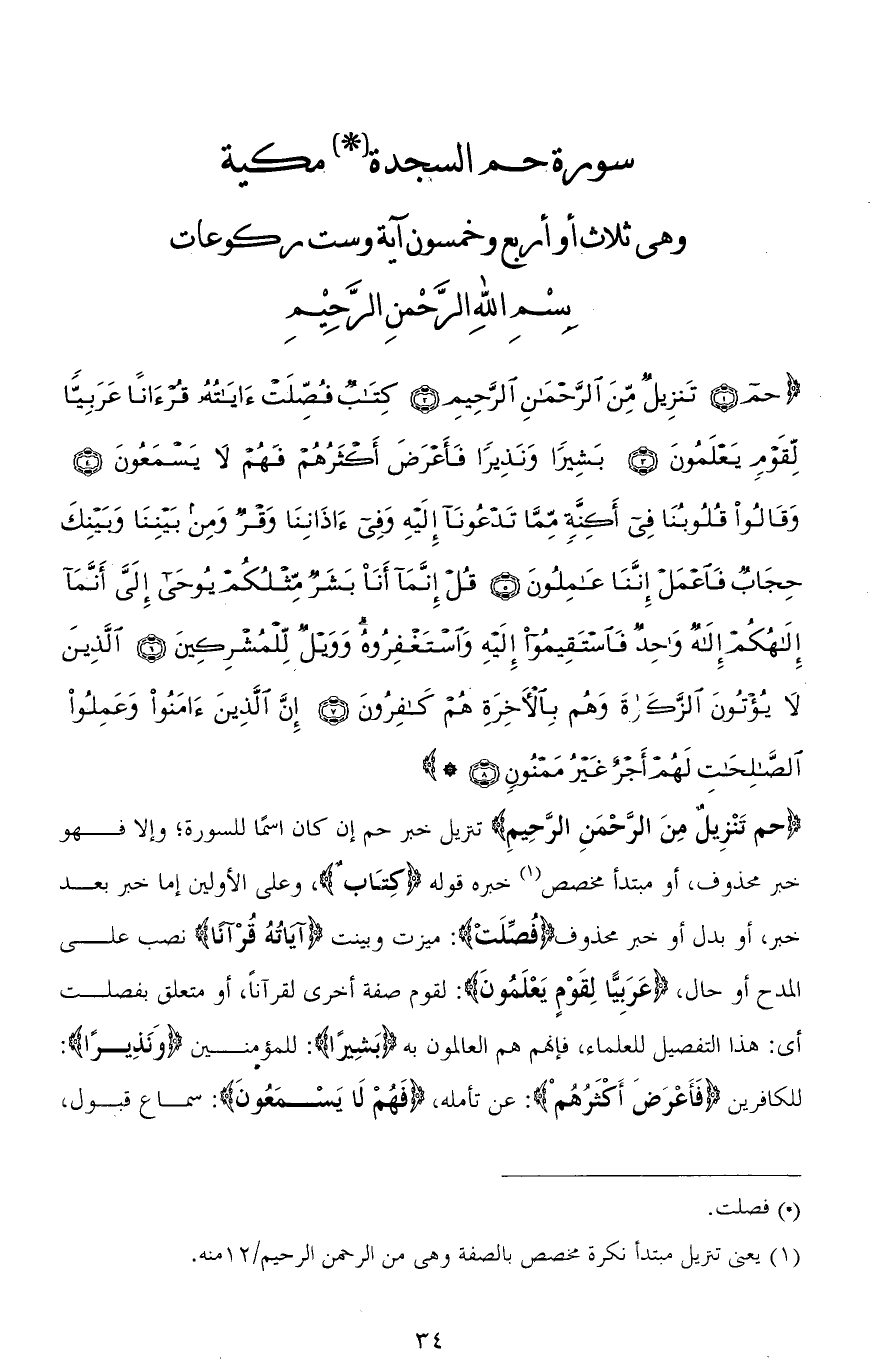 سورة حم السجدة(*) مكية
وهى ثلاث أو أربع وخمسون آية وست ركوعات
بِسْمِ اللهِ الرَّحْمنِ الرَّحِيْمِ
﴿حمٓ ١ تَنزِيلٌ مِّنَ ٱلرَّحْمَـٰنِ ٱلرَّحِيمِ ٢ كِتَـٰبٌ فُصِّلَتْ ءَايَـٰتُهُۥ قُرْءَانًا عَرَبِيًّا
لِّقَوْمٍ يَعْلَمُونَ ٣ بَشِيرًا وَنَذِيرًا فَأَعْرَضَ أَكْثَرُهُمْ فَهُمْ لَا يَسْمَعُونَ ٤
وَقَالُوا۟ قُلُوبُنَا فِىٓ أَكِنَّةٍ مِّمَّا تَدْعُونَآ إِلَيْهِ وَفِىٓ ءَاذَانِنَا وَقْرٌ وَمِنۢ بَيْنِنَا وَبَيْنِكَ
حِجَابٌ فَٱعْمَلْ إِنَّنَا عَـٰمِلُونَ ٥ قُلْ إِنَّمَآ أَنَا۠ بَشَرٌ مِّثْلُكُمْ يُوحَىٰٓ إِلَىَّ أَنَّمَآ
إِلَـٰهُكُمْ إِلَـٰهٌ وَٰحِدٌ فَٱسْتَقِيمُوٓا۟ إِلَيْهِ وَٱسْتَغْفِرُوهُ ۗ وَوَيْلٌ لِّلْمُشْرِكِينَ ٦ ٱلَّذِينَ
لَا يُؤْتُونَ ٱلزَّكَوٰةَ وَهُم بِٱلْـَٔاخِرَةِ هُمْ كَـٰفِرُونَ ٧ إِنَّ ٱلَّذِينَ ءَامَنُوا۟ وَعَمِلُوا۟
ٱلصَّـٰلِحَـٰتِ لَهُمْ أَجْرٌ غَيْرُ مَمْنُونٍ ٨ * ﴾
﴿حم تَنْزِيلٌ مِنَ الرَّحْمَنِ الرَّحِيمِ﴾ تنزيل خبر حم إن كان اسمًا للسورة؛ وإلا فـهو
خبر محذوف، أو مبتدأ مخصص(١) خبره قوله ﴿كِتَابٌ﴾، وعلى الأولين إما خبر بعد
خبر، أو بدل أو خبر محذوف﴿فُصِّلَتْ﴾: ميزت وبينت ﴿آيَاتُهُ قُرْآنًا﴾ نصب على
المدح أو حال، ﴿عَرَبِيًّا لِقَوْمٍ يَعْلَمُونَ﴾: لقوم صفة أخرى لقرآناً، أو متعلق بفصلت
أى: هذا التفصيل للعلماء، فإنهم هم العالمون به ﴿بَشِيرًا﴾: للمؤمنين ﴿وَنَذِيرًا﴾:
للكافرين ﴿فَأَعْرَضَ أَكْثَرُهُمْ﴾: عن تأمله، ﴿فَهُمْ لَا يَسْمَعُونَ﴾: سماع قبول،
(*) فصلت.
(١) يعنى تنزيل مبتدأ نكرة مخصص بالصفة وهى من الرحمن الرحيم/١٢منه.
٣٤